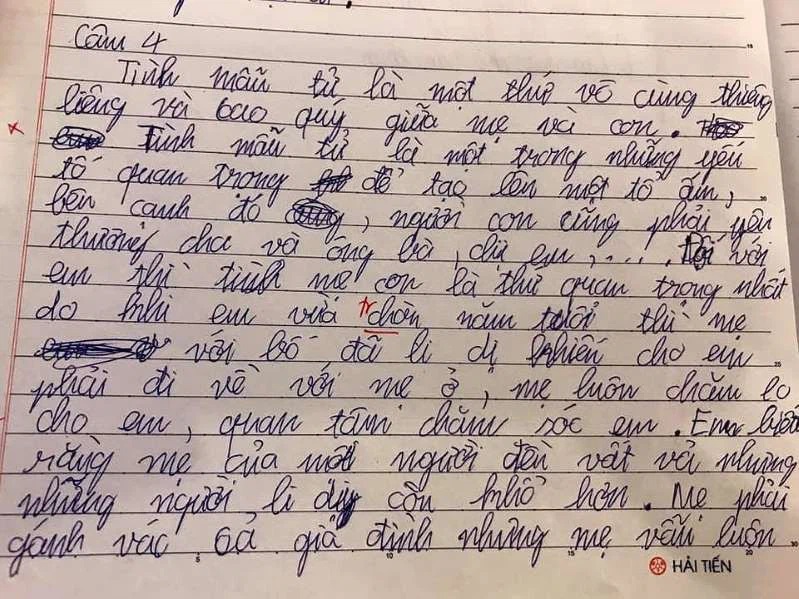 Câu 4
Tình mẫu tử là một thứ vô cùng thiêng
liêng và bao quý giữa mẹ và con.
Tình mẫu tử là một trong những yếu
tố quan trong để tạo lên một tổ ấm,
bên cạnh đó, người con cũng phải yêu
thương cha và ông bà, chị em,.... Đối với
em thì tình mẹ con là thứ quan trọng nhất
do khi em vừa tr chòn năm tuổi thì mẹ
với bố đã li dị khiến cho em
phải đi về với mẹ ở, mẹ luôn chăm lo
cho em, quan tâm chăm sóc em. Em
rằng mẹ của mỗi người đều vất vả nhưng
những người li dị còn khổ hơn. Mẹ phải
gánh vác cả gia đình nhưng mẹ vẫn luôn
HẢI TIẾN
15
20
25
5
10
15
20
30